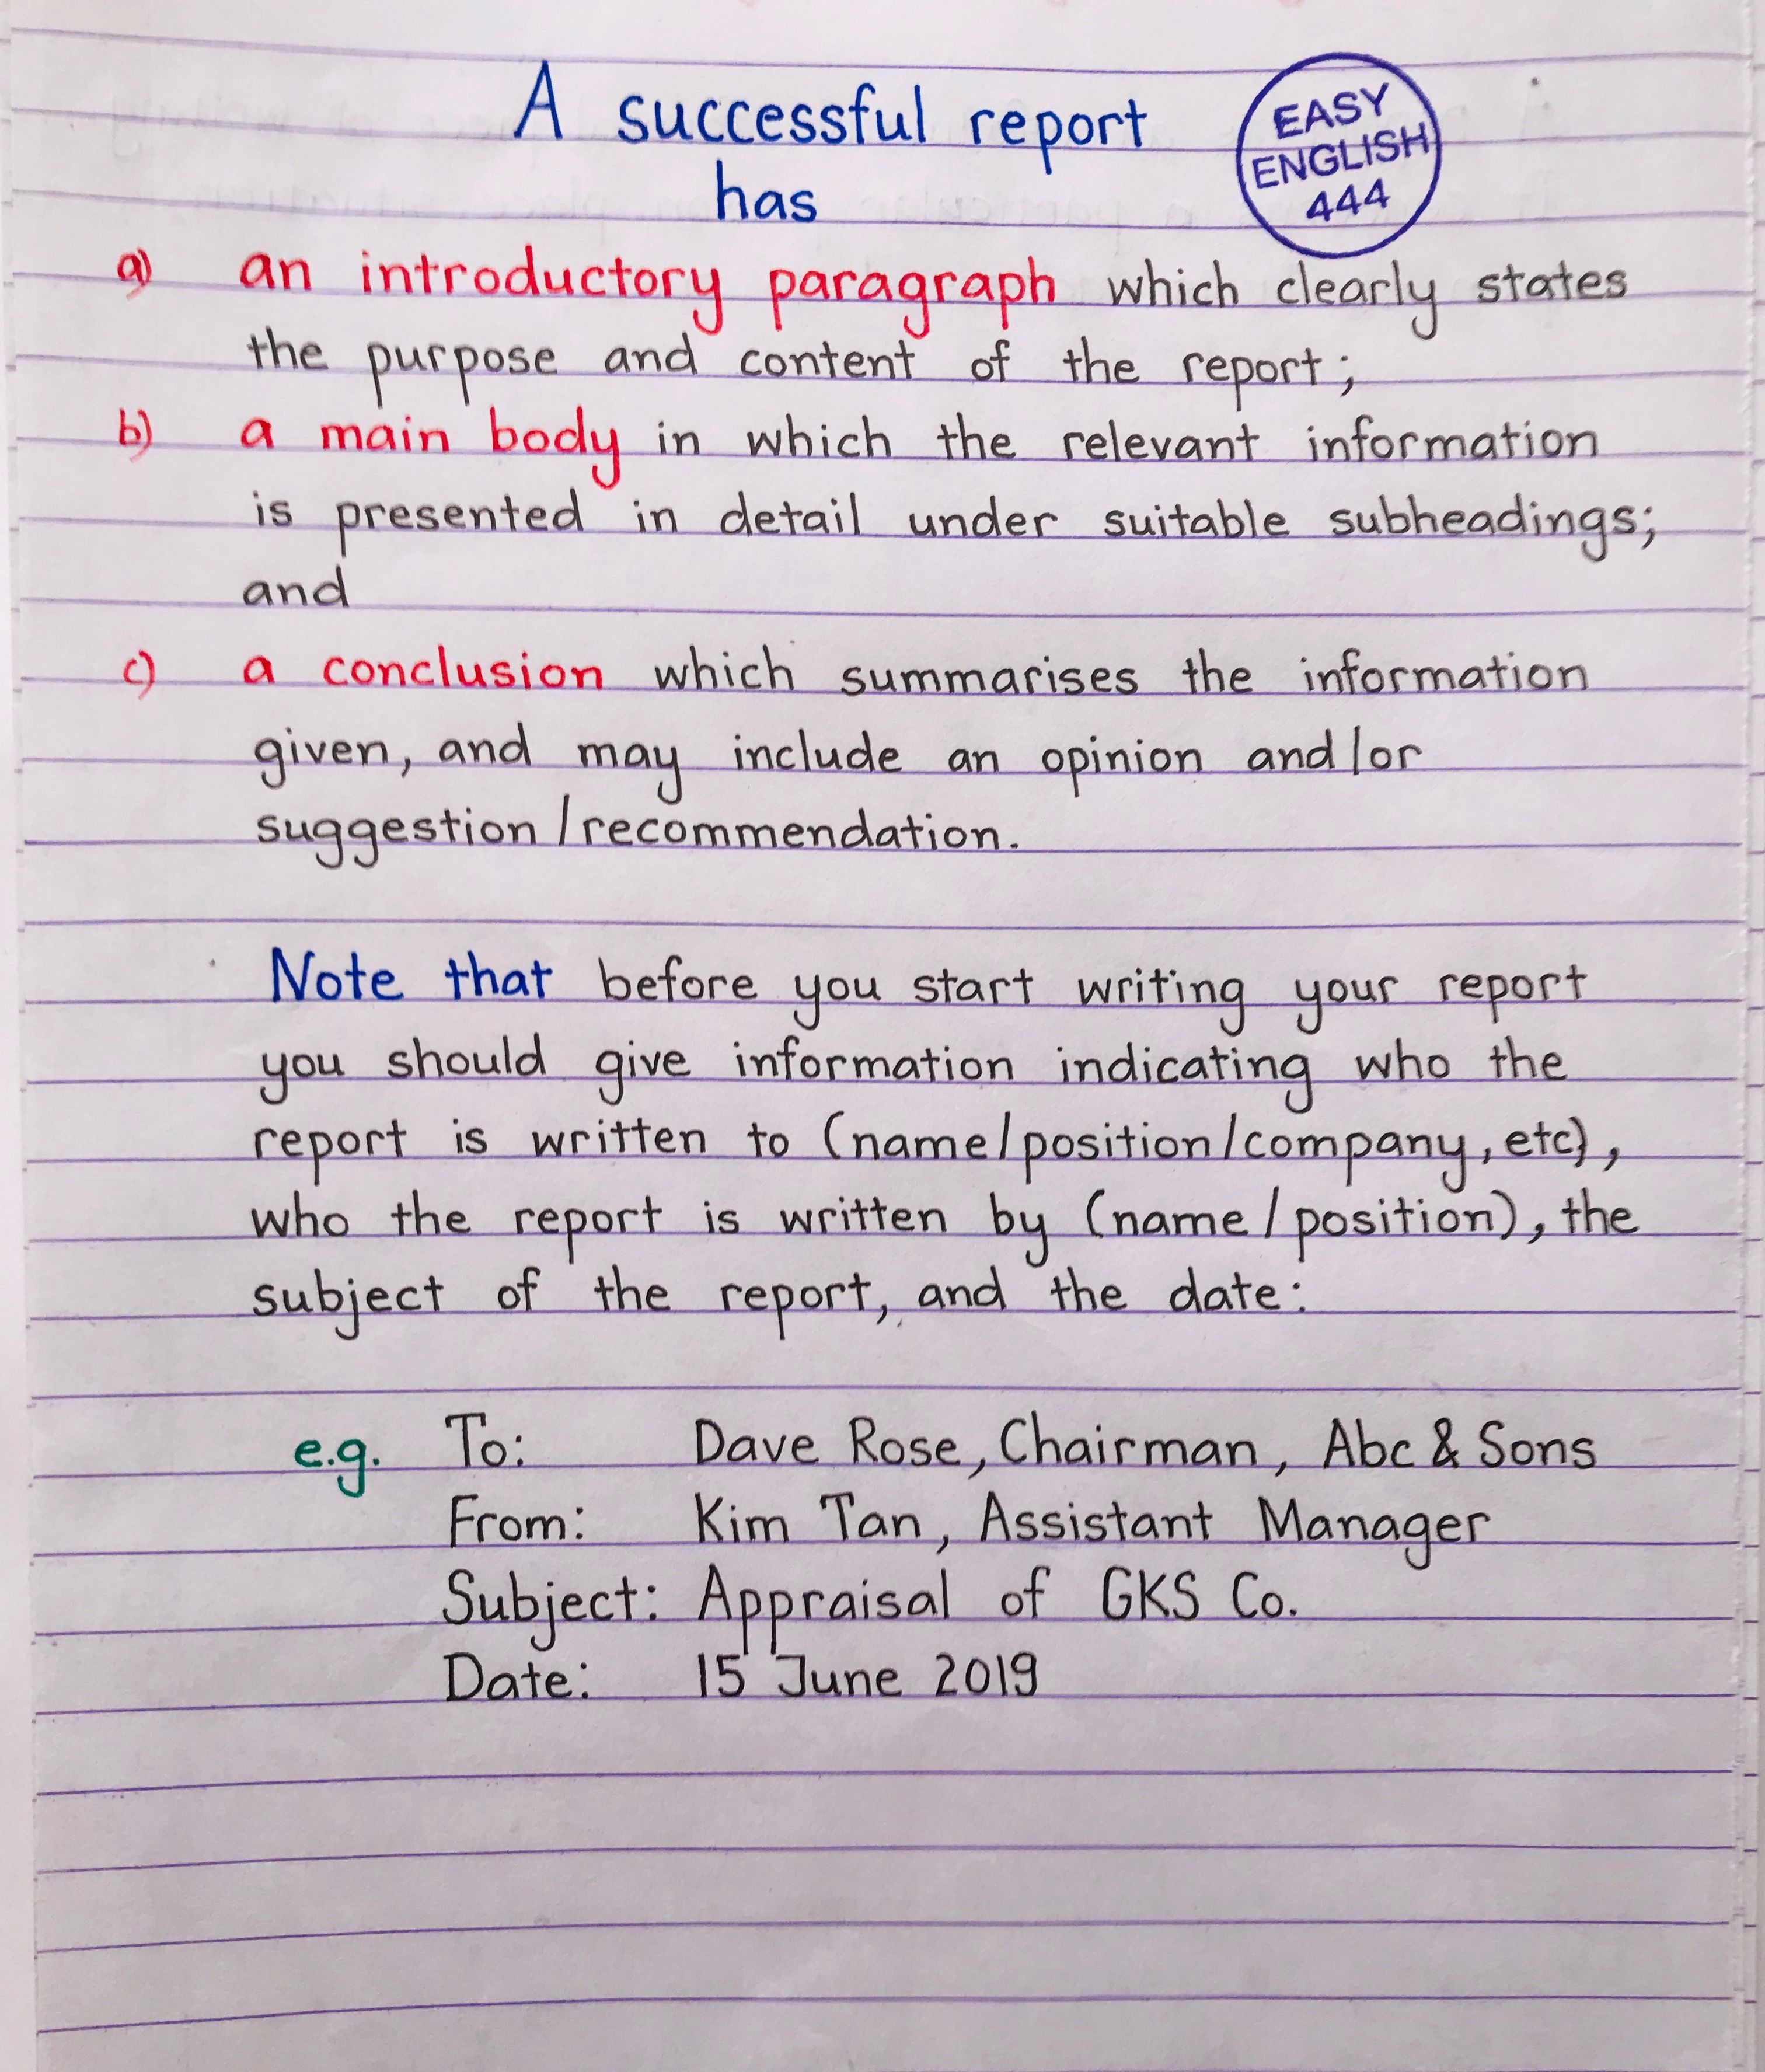 A successful report
has
EASY
ENGLISH
444
a) an introductory paragraph which clearly states
the purpose and content of the report;
b) a main body in which the relevant information
is presented in detail under suitable subheadings;
and
c) a conclusion which summarises the information
given, and may include an opinion and/or
suggestion/recommendation.
Note that before you start writing your report
you should give information indicating who the
report is written to (name/position/company, etc),
who the report is written by (name/position), the
subject of the report, and the date:
e.g. To: Dave Rose, Chairman, Abc & Sons
From: Kim Tan, Assistant Manager
Subject: Appraisal of GKS Co.
Date: 15 June 2019